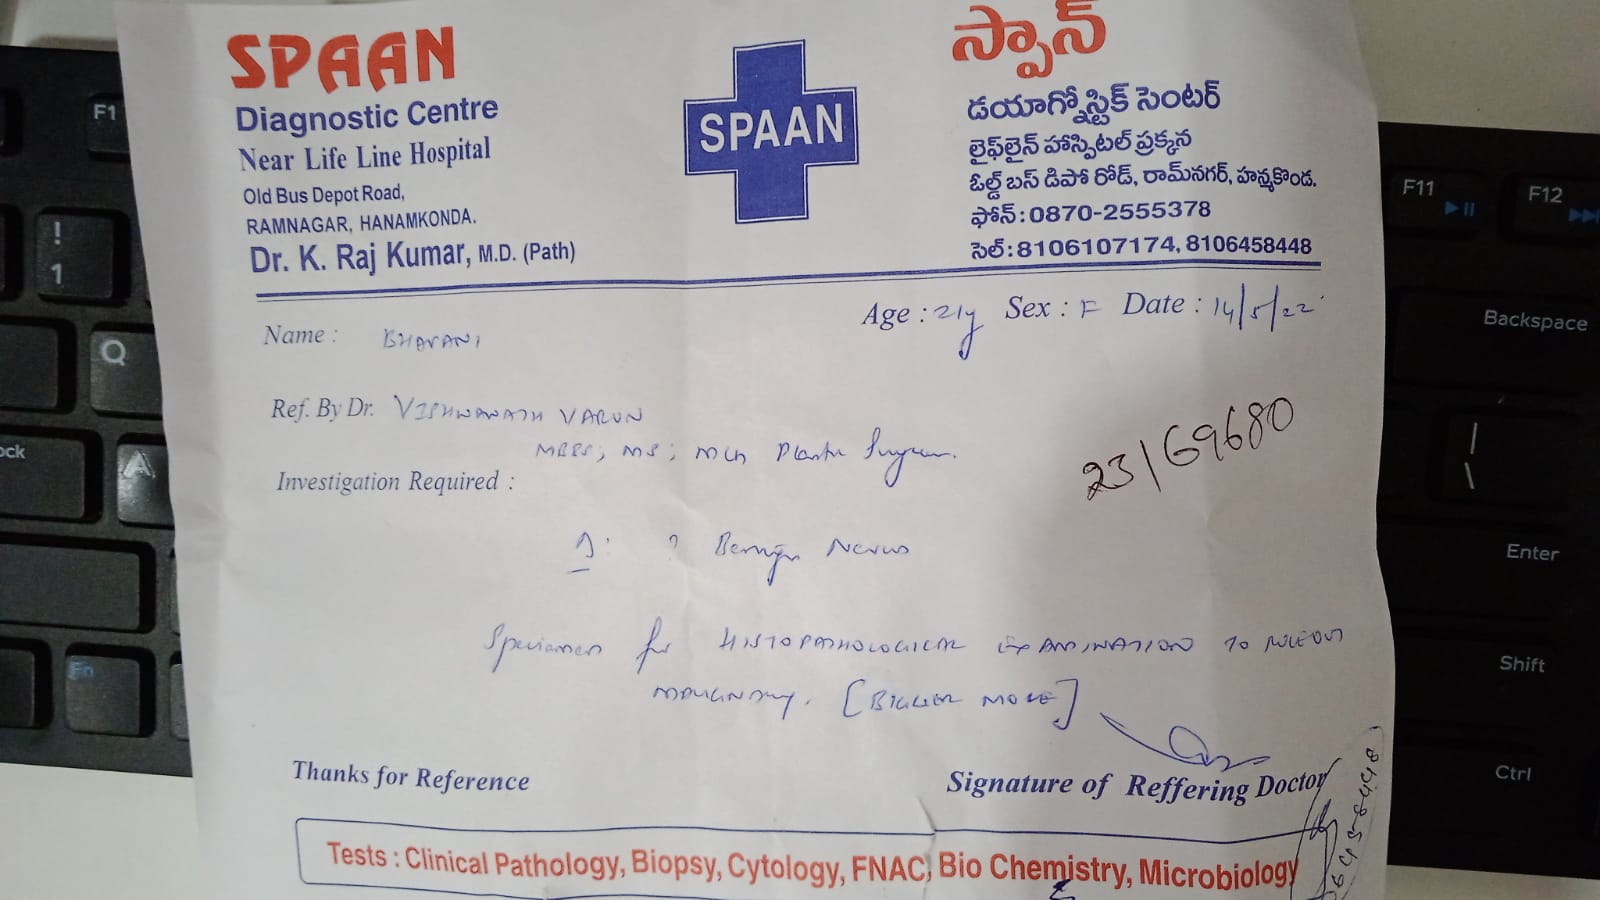 SPAAN
Diagnostic Centre
Near Life Line Hospital
Old Bus Depot Road,
RAMNAGAR, HANAMKONDA.
Dr. K. Raj Kumar, M.D. (Path)
SPAAN
స్పాన్
డయాగ్నోస్టిక్ సెంటర్
లైఫ్‌లైన్ హాస్పిటల్ ప్రక్కన
ఓల్డ్ బస్ డిపో రోడ్, రామ్‌నగర్, హన్మకొండ.
ఫోన్ : 0870-2555378
సెల్ : 8106107174, 8106458448
Age : 21y Sex : F Date : 14/5/22
Name : BHAVANI
Ref. By Dr. VISHWANATH VARUN
MBBS; MS; MCh Plastic Surgeon.
23/G9680
Investigation Required :
? Benign Nevus
Specimen for HISTOPATHOLOGICAL EXAMINATION TO RULEOUT
MALIGNANCY. [BIGGER MOLE]
Thanks for Reference
Signature of Reffering Doctor
Tests : Clinical Pathology, Biopsy, Cytology, FNAC, Bio Chemistry, Microbiology
F1
!
1
Q
A
Fn
F11
F12
Backspace
|
\
Enter
Shift
Ctrl